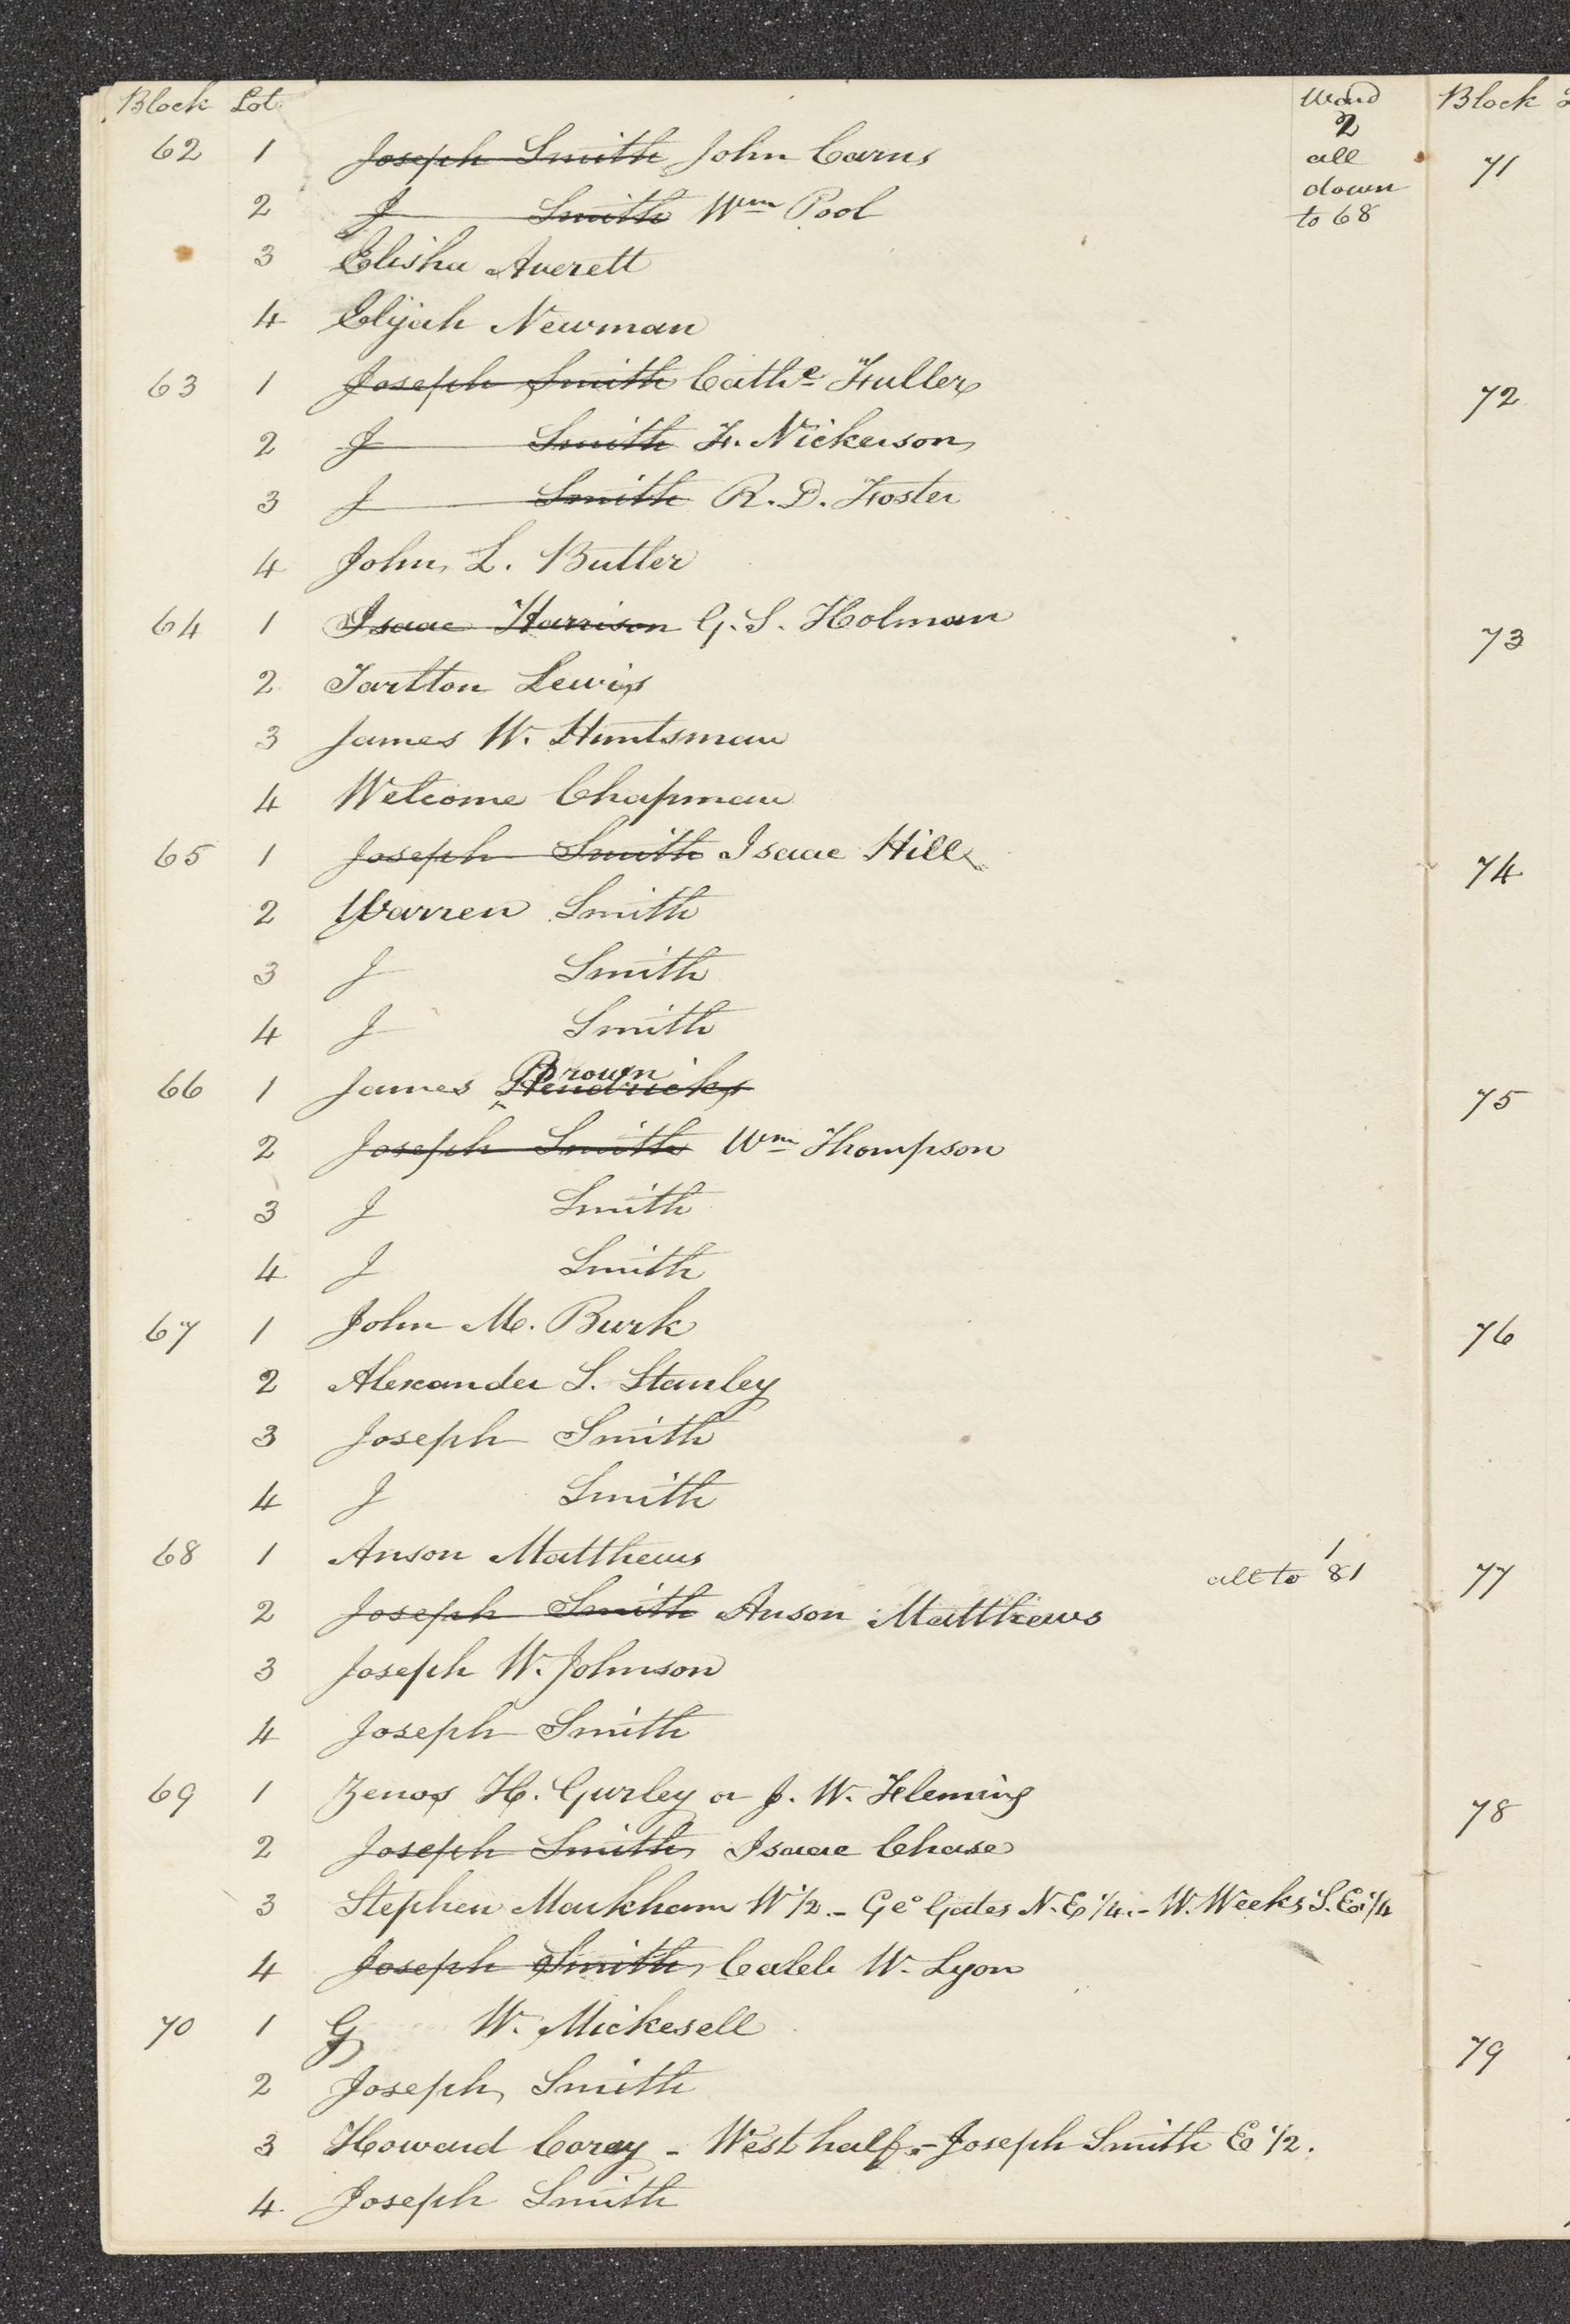 Block Lot Ward
62 1 Joseph Smith John Carns 2
all
2 J Smith Wm Pool down
to 68
3 Elisha Averett
4 Elijah Newman
63 1 Joseph Smith Cathe Fuller
2 J Smith F. Nickerson
3 J Smith R. D. Foster
4 John L. Butler
64 1 Isaac Harrison G. S. Holman
2 Tartton Lewis
3 James W. Huntsman
4 Welcome Chapman
65 1 Joseph Smith Isaac Hill
2 Warren Smith
3 J Smith
4 J Smith
66 1 James Hendricks Brown
2 Joseph Smith Wm Thompson
3 J Smith
4 J Smith
67 1 John M. Burk
2 Alexander S. Stanley
3 Joseph Smith
4 J Smith
68 1 Anson Matthews 1
all to 81
2 Joseph Smith Anson Matthews
3 Joseph W. Johnson
4 Joseph Smith
69 1 Zenos H. Gurley or J. W. Fleming
2 Joseph Smith Isaac Chase
3 Stephen Markham W 1/2. - Geo Gates N. E 1/4. - W. Weeks S. E 1/4
4 Joseph Smith Caleb W. Lyon
70 1 G W. Mickesell
2 Joseph Smith
3 Howard Coray - West half. - Joseph Smith E 1/2.
4. Joseph Smith
Block
71
72
73
74
75
76
77
78
79